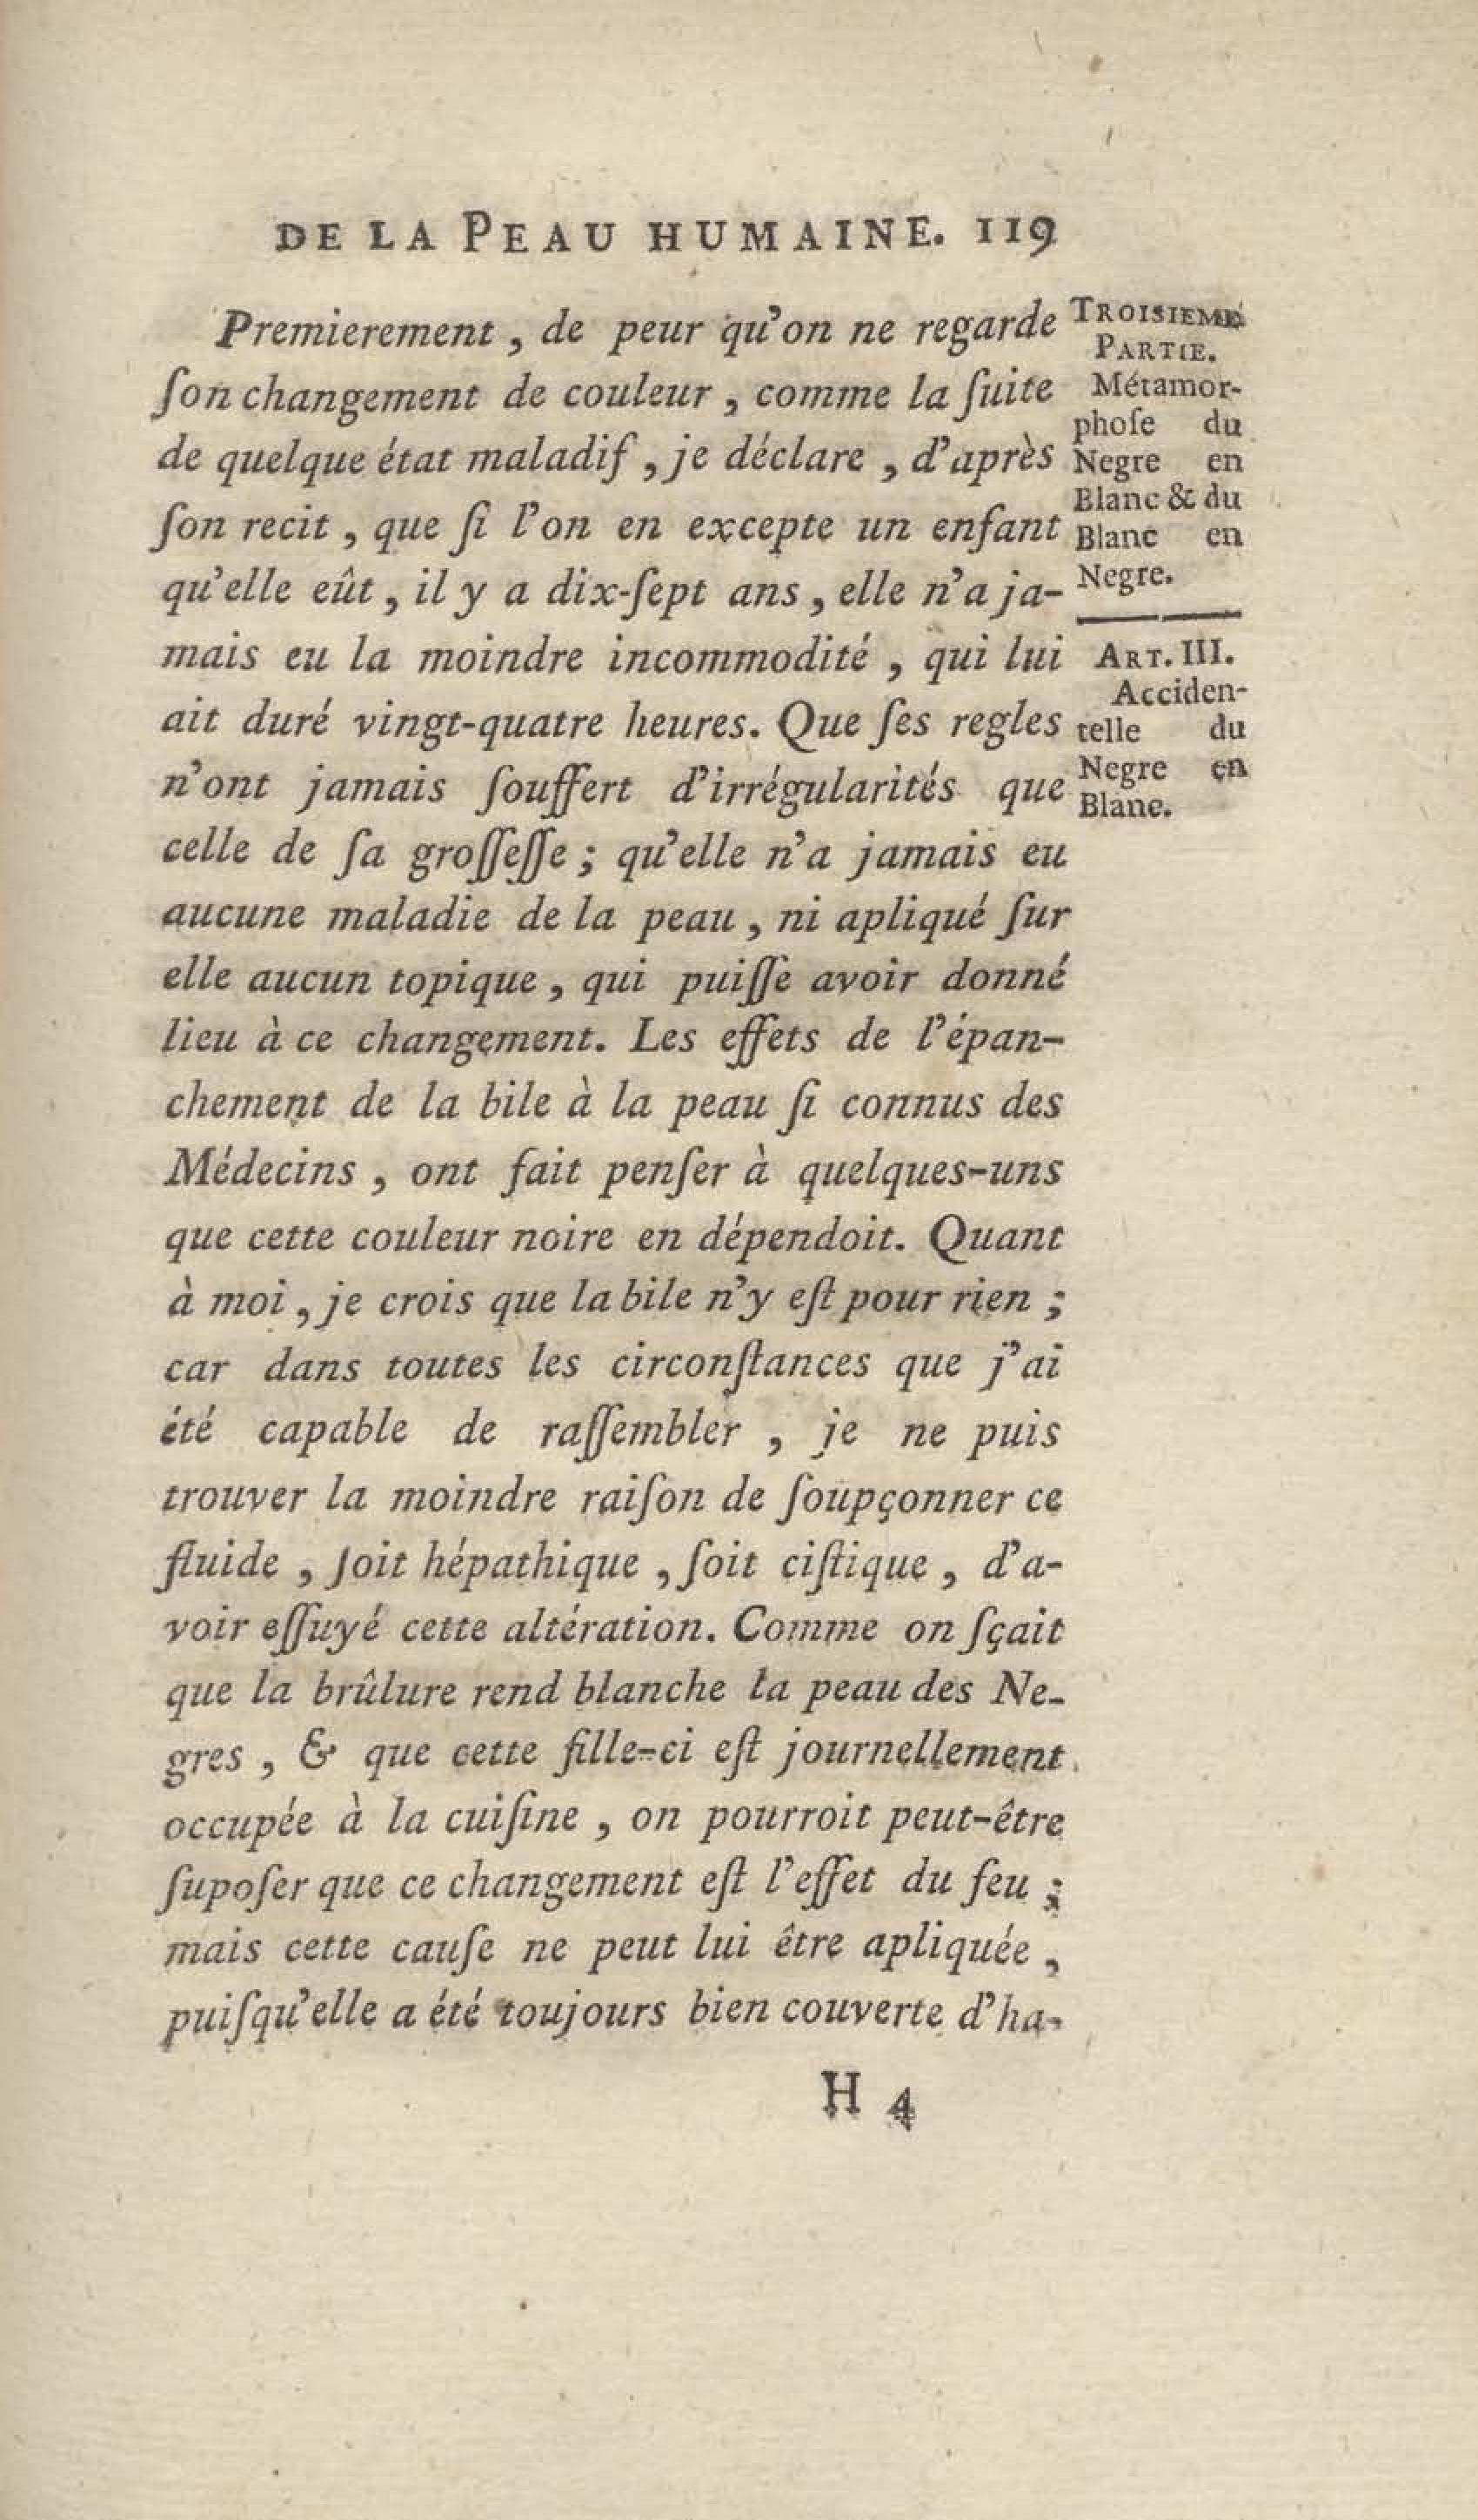 DE LA PEAU HUMAINE. 119
Premierement, de peur qu'on ne regarde
ſon changement de couleur, comme la ſuite
de quelque état maladif, je déclare, d'après
ſon recit, que ſi l'on en excepte un enfant
qu'elle eût, il y a dix-ſept ans, elle n'a ja-
mais eu la moindre incommodité, qui lui
ait duré vingt-quatre heures. Que ſes regles
n'ont jamais ſouffert d'irrégularités que
celle de ſa groſſeſſe; qu'elle n'a jamais eu
aucune maladie de la peau, ni apliqué ſur
elle aucun topique, qui puiſſe avoir donné
lieu à ce changement. Les effets de l'épan-
chement de la bile à la peau ſi connus des
Médecins, ont fait penſer à quelques-uns
que cette couleur noire en dépendoit. Quant
à moi, je crois que la bile n'y eſt pour rien;
car dans toutes les circonſtances que j'ai
été capable de raſſembler, je ne puis
trouver la moindre raiſon de ſoupçonner ce
fluide, ſoit hépathique, ſoit ciſtique, d'a-
voir eſſuyé cette altération. Comme on ſçait
que la brûlure rend blanche la peau des Ne-
gres, & que cette fille-ci eſt journellement
occupée à la cuiſine, on pourroit peut-être
ſupoſer que ce changement eſt l'effet du feu;
mais cette cauſe ne peut lui être apliquée,
puiſqu'elle a été toujours bien couverte d'ha-
H 4
TROISIEME
PARTIE.
Métamor-
phoſe du
Negre en
Blanc & du
Blanc en
Negre.
ART. III.
Acciden-
telle du
Negre en
Blanc.